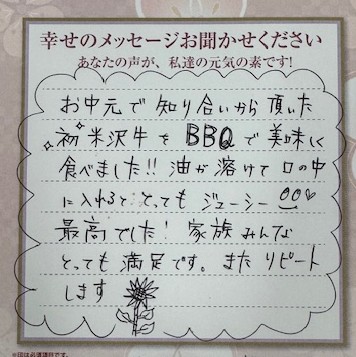 幸せのメッセージお聞かせください
あなたの声が、私達の元気の素です!
お中元で知り合いから頂いた
初米沢牛をBBQで美味しく
食べました!!油が溶けて口の中
に入れるととってもジューシー
最高でした!家族みんな
とっても満足です。またリピート
します
※印は必須項目です。